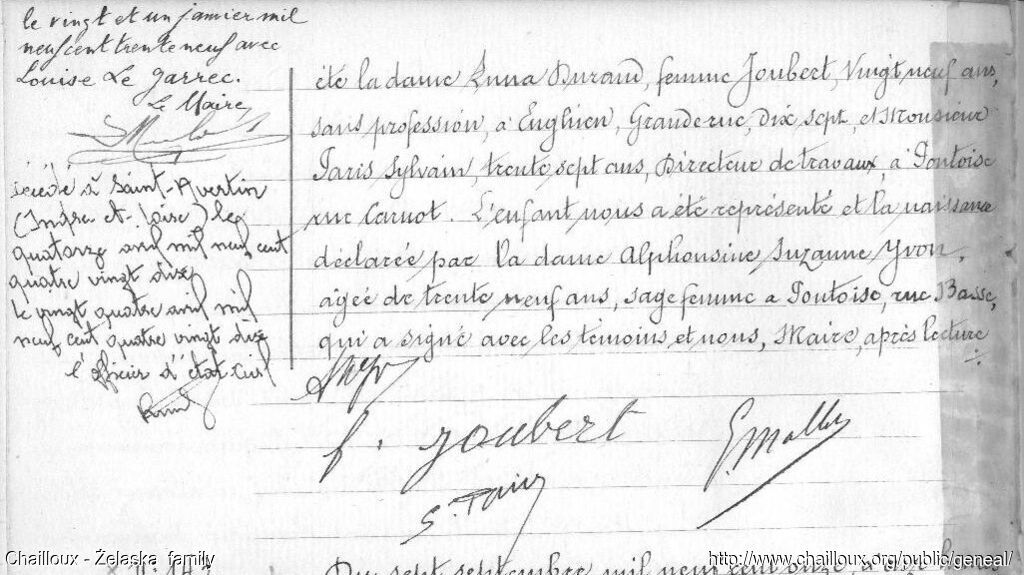 le vingt et un janvier mil
neuf cent trente neuf avec
Louise Le Garrec.
Le Maire,
décédé à Saint-Avertin
(Indre et Loire) le
quatorze avril mil neuf cent
quatre vingt dix
le vingt quatre avril mil
neuf cent quatre vingt dix
l'officier d'état civil
été la dame Anna Durand, femme Joubert, vingt neuf ans,
sans profession, à Enghien, Grande rue, dix sept, et Monsieur
Paris Sylvain, trente sept ans, Directeur de travaux, à Pontoise
rue Carnot. L'enfant nous a été représenté et la naissance
déclarée par la dame Alphonsine, Suzanne Yvon,
âgée de trente neuf ans, sage femme à Pontoise, rue Basse,
qui a signé avec les témoins et nous, Maire, après lecture
f. Joubert
S. Paris
G. Mallet
Du sept septembre mil neuf cent onze, à
Chailloux - Żelaska family
http://www.chailloux.org/public/geneal/